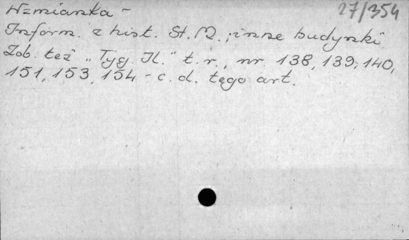 Wzmianka - 27/354
Inform. z hist. St. M. ; inne budynki
Zob. też "Tyg. Il." t. r., nr 138, 139, 140,
151, 153, 154 - c. d. tego art.